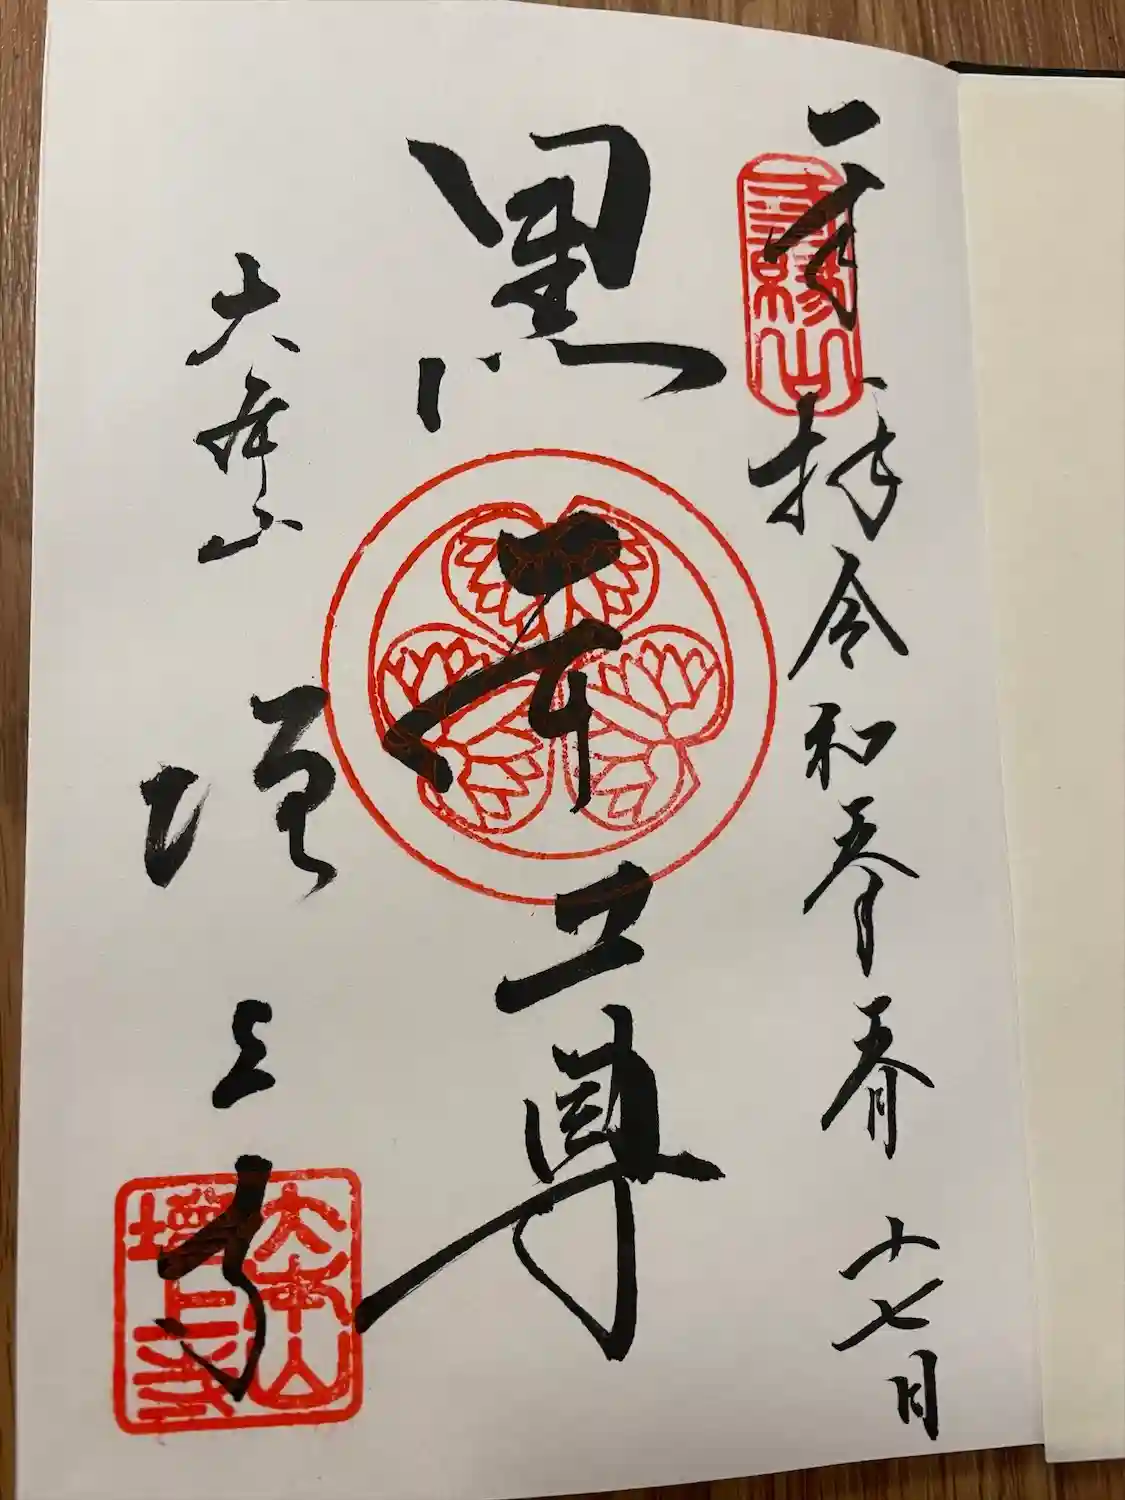 奉拝 令和 年 月 十七日
三縁山
黒本尊
大本山
増上寺
大本山
增上寺